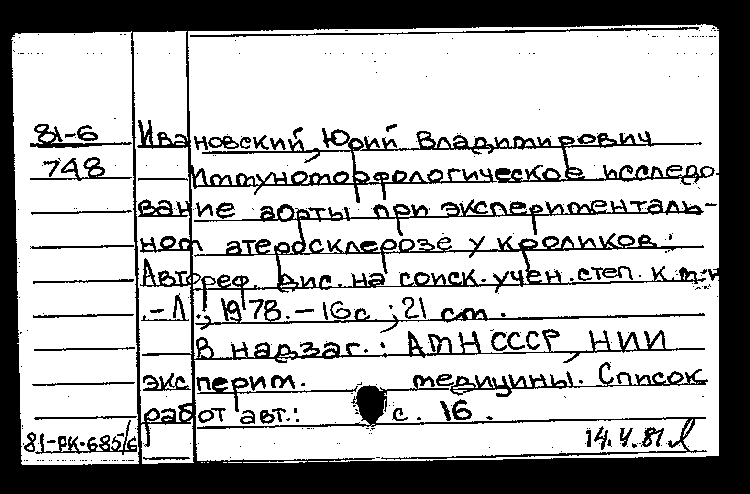 81-6 Ивановский, Юрий Владимирович
748 Иммуноморфологическое исследо-
вание аорты при эксперименталь-
ном атеросклерозе у кроликов:
Автореф. дис. на соиск. учен. степ. к.м.н
.-Л., 1978.-16с ; 21 см.
В надзаг.: АМН СССР, НИИ
эксперим. медицины. Список
работ авт.: с. 16.
81-РК-685/6 14.V.81